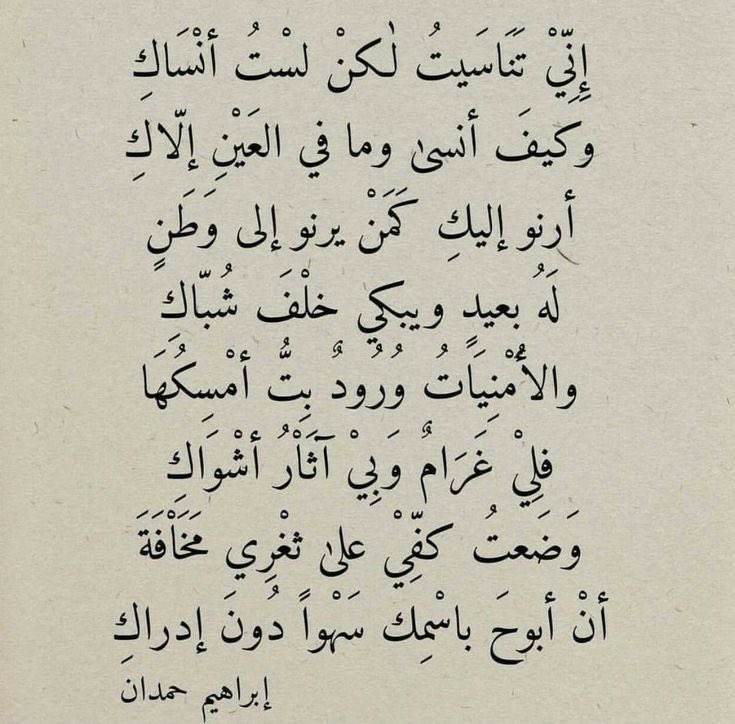 إِنِّيْ تَنَاسَيتُ لٰكنْ لسْتُ أنْسَاكِ
وكيفَ أنسىٰ وما في العَيْنِ إلّاكِ
أرنو إليكِ كَمَنْ يرنو إلى وَطَنٍ
لَهُ بعيدٍ ويبكي خلْفَ شُبّاكِ
والأُمْنِيَاتُ وُرُودٌ بِتُّ أمْسِكُهَا
فلِيْ غَرَامٌ وَبِيْ آثَارُ أشْوَاكِ
وَضَعتُ كفِّيْ علىٰ ثغْرِي مَخَافَةَ
أنْ أبوحَ باسْمِك سَهْواً دُونَ إدراكِ
إبراهيم حمدان